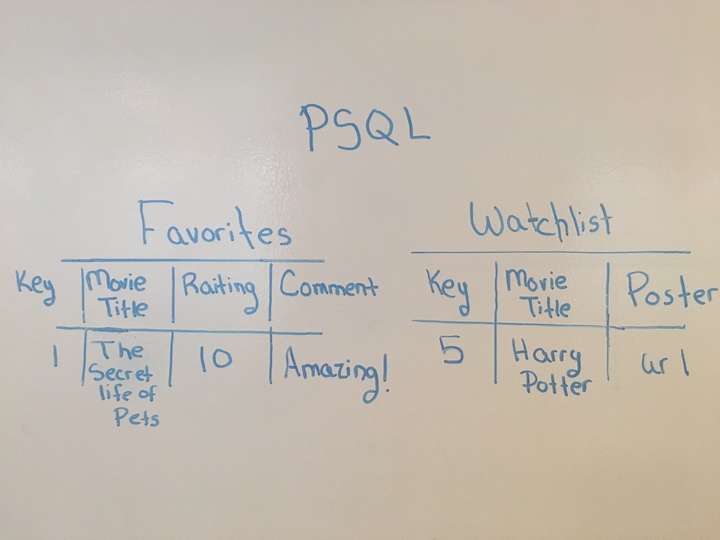 PSQL
Favorites
Key Movie Title Raiting Comment
1 The Secret life of Pets 10 Amazing!
Watchlist
Key Movie Title Poster
5 Harry Potter url